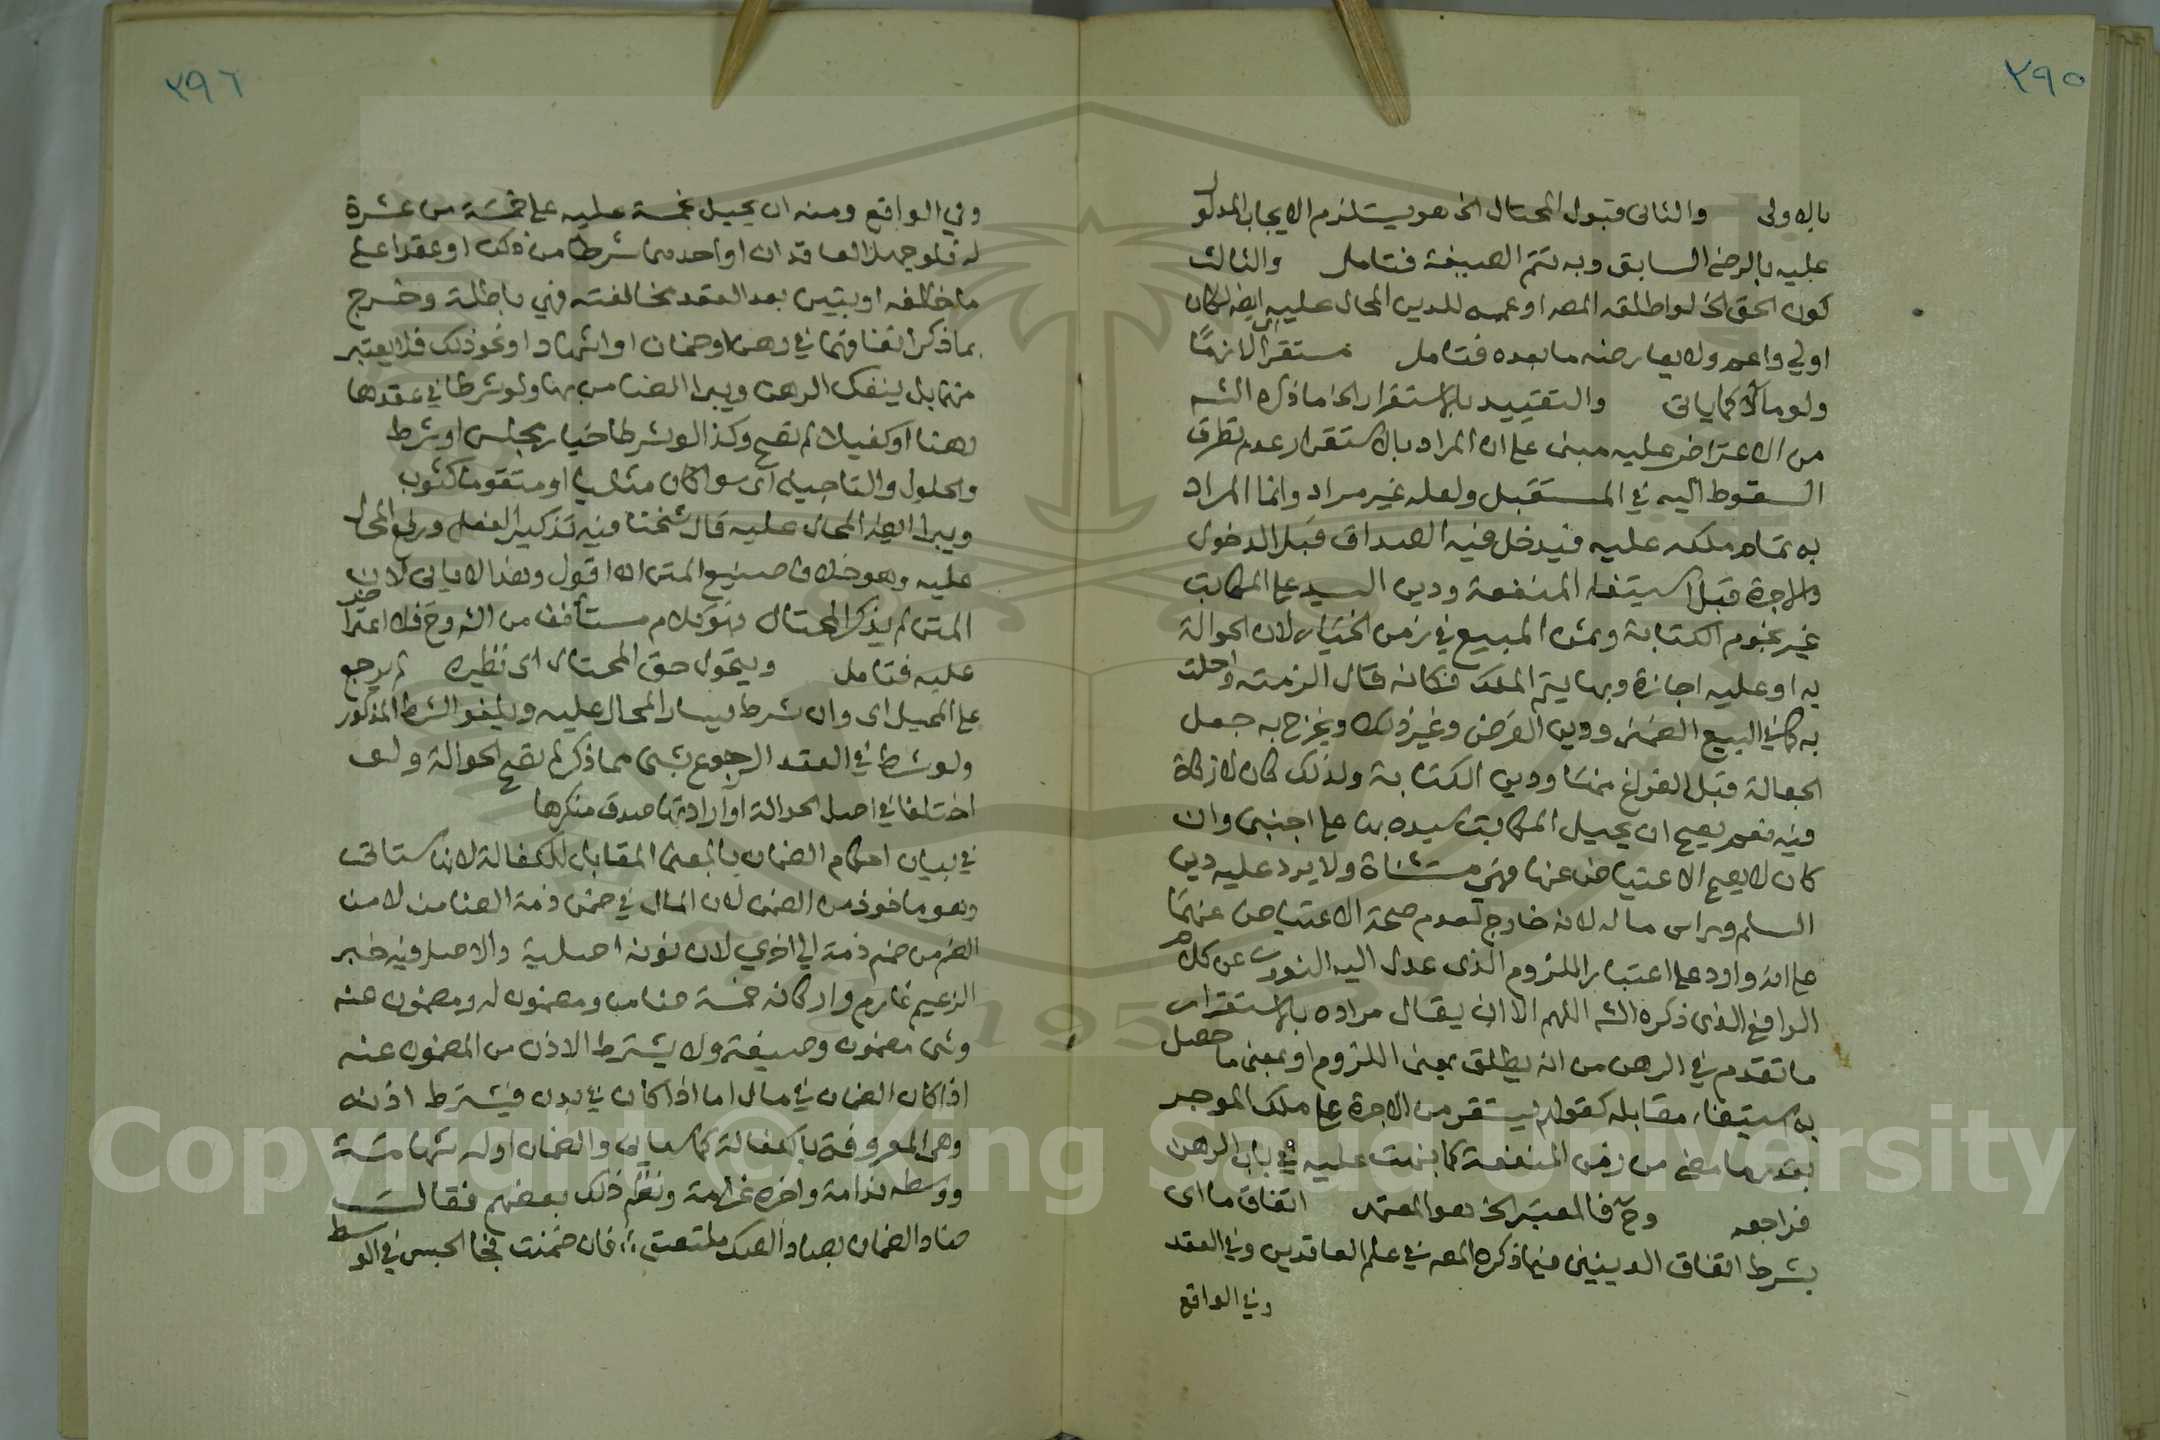 ٣٩٥
بالاولى والثانى قبول المحتال الخ هو يستلزم الايجاب المدلو
عليه بالرضى السابق وبه تتم الصيغة فتامل والثالث
كون الحق الخ لو اطلقه المصـ او عممه للدين المحال عليه ايضا لكان
اولى واعم ولا يعارضه ما بعده فتامل مستقرا اى لازمًا
ولو مآلا كما ياتى والتقييد بالاستقرار الخ ما ذكره الشـ
من الاعتراض عليه مبنى على ان المراد بالاستقرار عدم تطرق
السقوط اليه فى المستقبل ولعله غير مراد وانما المراد
به تمام ملكه عليه فيدخل فيه الصداق قبل الدخول
والاجرة قبل استيفاء المنفعة ودين السيد على المكاتب
غير نجوم الكتابة وثمن المبيع فى زمن الخيار لان الحوالة
به او عليه اجازة وبها يتم الملك فكانه قال الزمته واحلت
به كما فى البيع الضمنى ودين القرض وغير ذلك ويخرج به جعل
الجعالة قبل الفراغ منها ودين الكتابة ولذلك كان لا زكاة
فيه نعم يصح ان يحيل المكاتب سيده بها على اجنبى وان
كان لا يصح الاعتياض عنها فهى مستثناة ولا يرد عليه دين
السلم وراس ماله لانه خارج لعدم صحة الاعتياض عنهما
على انه وارد على اعتبار اللزوم الذى عدل اليه النووى عن كلام
الرافعى الذى ذكره الشـ اللهم الا ان يقال مراده بالاستقرار
ما تقدم فى الرهن من انه يطلق بمعنى اللزوم او بمعنى ما حصل
به استيفاء مقابله كقولهم يستقر من الاجرة على ملك الموجر
بقدر ما مضى من زمن المنفعة كما نبهت عليه فى باب الرهن
فراجعه وح فالمعتبر الخ هو المعتمد اتفاق ما اى
بشرط اتفاق الدينين فيما ذكره المصـ فى علم العاقدين وفى العقد
وفى الواقع
٣٩٦
وفى الواقع ومنه ان يحيل بخمسة عليه على خمسة من عشرة
له فلو جهل العاقدان او احدهما شرطا من ذلك او عقدا على
ما خالفه او تبين بعد العقد مخالفته فهى باطلة وخرج
بما ذكر اتفاقهما فى رهن او ضمان او اشهاد او نحو ذلك فلا يعتبر
منها بل ينفك الرهن ويبرا الضامن بها ولو شرطا فى عقدها
رهنا او كفيلا لم تصح وكذا لو شرطا خيار مجلس او شرط
والحلول والتاجيل اى سواكان مثليا او متقوما كثوب
ويبرا ايضا المحال عليه قال شيخنا فيه تذكير الفعل ورفع المحال
عليه وهو خلاف صنيع المتن اه اقول وهذا لا ياتى لان
المتن لم يذكر المحتال فهو كلام مستأنف من الشـ وح فلا اعتراض
عليه فتامل ويتحول حق المحتال اى نظيره لم يرجع
على المحيل اى وان شرط يسار المحال عليه ويلغو الشرط المذكور
ولو شرط فى العقد الرجوع بشى مما ذكر لم تصح الحوالة ولو
اختلفا فى اصل الحوالة او ارادتها صدق منكرها
فى بيان احكام الضمان بالمعنى المقابل للكفالة لانها ستاتى
وهو ماخوذ من الضمن لان المال فى ضمن ذمة الضامن لا من
الضم من ضم ذمة الى اخرى لان نونه اصلية والاصل فيه خبر
الزعيم غارم واركانه خمسة ضامن ومضمون له ومضمون عنه
وشى مضمون وصيغة ولا يشترط الاذن من المضمون عنه
اذا كان الضمان فى مال اما اذا كان فى بدن فيشترط اذنه
وهى المعروفة بالكفالة كما سياتى والضمان اوله شهامة
ووسطه ندامة واخره غرامة ونظم ذلك بعضهم فقال
ضاد الضمان بصاد الصك ملتصق ؛؛ فان ضمنت فخا الحبس فى الوسط